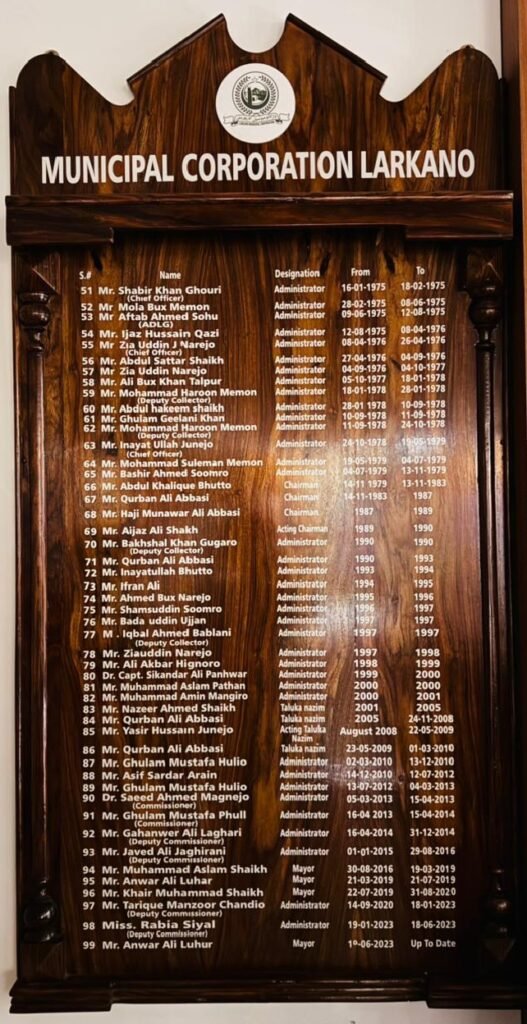 MUNICIPAL CORPORATION LARKANO
S.# Name Designation From To
51 Mr. Shabir Khan Ghouri Administrator 16-01-1975 18-02-1975
(Chief Officer)
52 Mr Mola Bux Memon Administrator 28-02-1975 08-06-1975
53 Mr Aftab Ahmed Sohu Administrator 09-06-1975 12-08-1975
(ADLG)
54 Mr. Ijaz Hussain Qazi Administrator 12-08-1975 08-04-1976
55 Mr Zia Uddin J Narejo Administrator 08-04-1976 26-04-1976
(Chief Officer)
56 Mr. Abdul Sattar Shaikh Administrator 27-04-1976 04-09-1976
57 Mr Zia Uddin Narejo Administrator 04-09-1976 04-10-1977
58 Mr. Ali Bux Khan Talpur Administrator 05-10-1977 18-01-1978
59 Mr. Mohammad Haroon Memon Administrator 18-01-1978 28-01-1978
(Deputy Collector)
60 Mr. Abdul hakeem shaikh Administrator 28-01 1978 10-09-1978
61 Mr. Ghulam Geelani Khan Administrator 10-09-1978 11-09-1978
62 Mr. Mohammad Haroon Memon Administrator 11-09-1978 24-10-1978
(Deputy Collector)
63 Mr. Inayat Ullah Junejo Administrator 24-10-1978 19-05-1979
(Chief Officer)
64 Mr. Mohammad Suleman Memon Administrator 19-05-1979 04-07-1979
65 Mr. Bashir Ahmed Soomro Administrator 04-07-1979 13-11-1979
66 Mr. Abdul Khalique Bhutto Chairman 14-11 1979 13-11-1983
67 Mr. Qurban Ali Abbasi Chairman 14-11-1983 1987
68 Mr. Haji Munawar Ali Abbasi Chairman 1987 1989
69 Mr. Aijaz Ali Shakh Acting Chairman 1989 1990
70 Mr. Bakhshal Khan Gugaro Administrator 1990 1990
(Deputy Collector)
71 Mr. Qurban Ali Abbasi Administrator 1990 1993
72 Mr. Inayatullah Bhutto Administrator 1993 1994
73 Mr. Ifran Ali Administrator 1994 1995
74 Mr. Ahmed Bux Narejo Administrator 1995 1996
75 Mr. Shamsuddin Soomro Administrator 1996 1997
76 Mr. Bada uddin Ujjan Administrator 1997 1997
77 M . Iqbal Ahmed Bablani Administrator 1997 1997
(Deputy Collector)
78 Mr. Ziauddin Narejo Administrator 1997 1998
79 Mr. Ali Akbar Hignoro Administrator 1998 1999
80 Dr. Capt. Sikandar Ali Panhwar Administrator 1999 2000
81 Mr. Muhammad Aslam Pathan Administrator 2000 2000
82 Mr. Muhammad Amin Mangiro Administrator 2000 2001
83 Mr. Nazeer Ahmed Shaikh Taluka nazim 2001 2005
84 Mr. Qurban Ali Abbasi Taluka nazim 2005 24-11-2008
85 Mr. Yasir Hussain Junejo Acting Taluka Nazim August 2008 22-05-2009
86 Mr. Qurban Ali Abbasi Taluka nazim 23-05-2009 01-03-2010
87 Mr. Ghulam Mustafa Hulio Administrator 02-03-2010 13-12-2010
88 Mr. Asif Sardar Arain Administrator 14-12-2010 12-07-2012
89 Mr. Ghulam Mustafa Hulio Administrator 13-07-2012 04-03-2013
90 Dr. Saeed Ahmed Magnejo Administrator 05-03-2013 15-04-2013
(Commissioner)
91 Mr. Ghulam Mustafa Phull Administrator 16-04 2013 15-04-2014
(Commissioner)
92 Mr. Gahanwer Ali Laghari Administrator 16-04-2014 31-12-2014
(Deputy Commissioner)
93 Mr. Javed Ali Jaghirani Administrator 01-01-2015 29-08-2016
(Deputy Commissioner)
94 Mr. Muhammad Aslam Shaikh Mayor 30-08-2016 19-03-2019
95 Mr. Anwar Ali Luhar Mayor 21-03-2019 21-07-2019
96 Mr. Khair Muhammad Shaikh Mayor 22-07-2019 31-08-2020
97 Mr. Tarique Manzoor Chandio Administrator 14-09-2020 18-01-2023
(Deputy Commissioner)
98 Miss. Rabia Siyal Administrator 19-01-2023 18-06-2023
(Deputy Commissioner)
99 Mr. Anwar Ali Luhur Mayor 19-06-2023 Up To Date